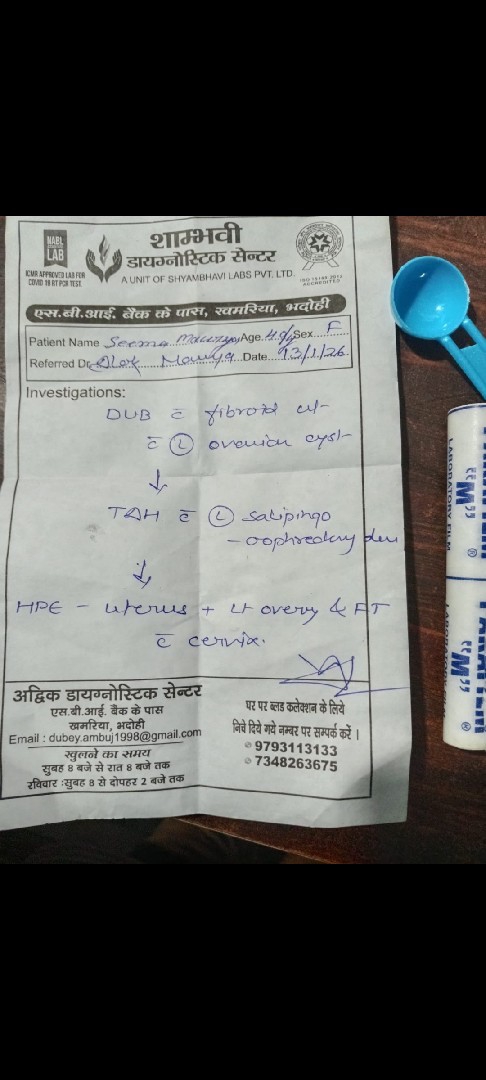 NABL
LAB
ICMR APPROVED LAB FOR
COVID 19 RT PCR TEST
शाम्भवी
डायग्नोस्टिक सेन्टर
A UNIT OF SHYAMBHAVI LABS PVT. LTD.
एस.बी.आई. बैंक के पास, खमरिया, भदोही
Patient Name Seema Maurya Age. Sex F
Referred Dr. Alok Maurya Date 13/1/26
Investigations:
DUB c̄ fibroid ut
c̄ (L) ovarian cyst
↓
TAH c̄ (L) salipingo
-oophredctomy
↓
HPE - uterus + Lt overy & FT
c̄ cervix.
अद्विक डायग्नोस्टिक सेन्टर
एस.बी.आई. बैंक के पास
खमरिया, भदोही
Email : dubey.ambuj1998@gmail.com
खुलने का समय
सुबह 8 बजे से रात 8 बजे तक
रविवार :सुबह 8 से दोपहर 2 बजे तक
घर पर ब्लड कलेक्शन के लिये
निचे दिये गये नम्बर पर सम्पर्क करें ।
9793113133
7348263675
LABORATORY FILM
"M"
"M"